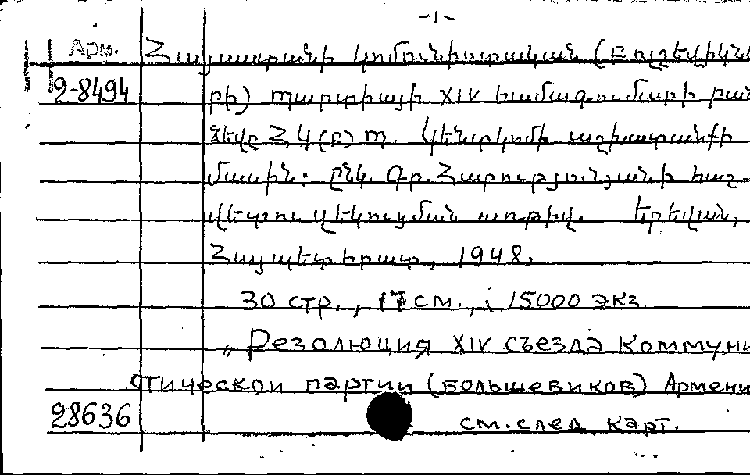 -1-
Арм. Հայաստանի կոմունիստական (բոլշեվիկնե
2-8494 րի) պարտիայի XIV համագումարի բան
ձևը ՀԿ(բ)Պ. Կենտկոմի աշխատանքի
մասին: ընկ. Գր. Հարությունյանի հաշ-
վետու զեկուցման առթիվ. Երևան,
Հայպետհրատ, 1948.
30 стр., 17 см., 15000 экз
„Резолюция XIV съезда Коммуни
стической партии (большевиков) Армени
28636 см. след. карт.